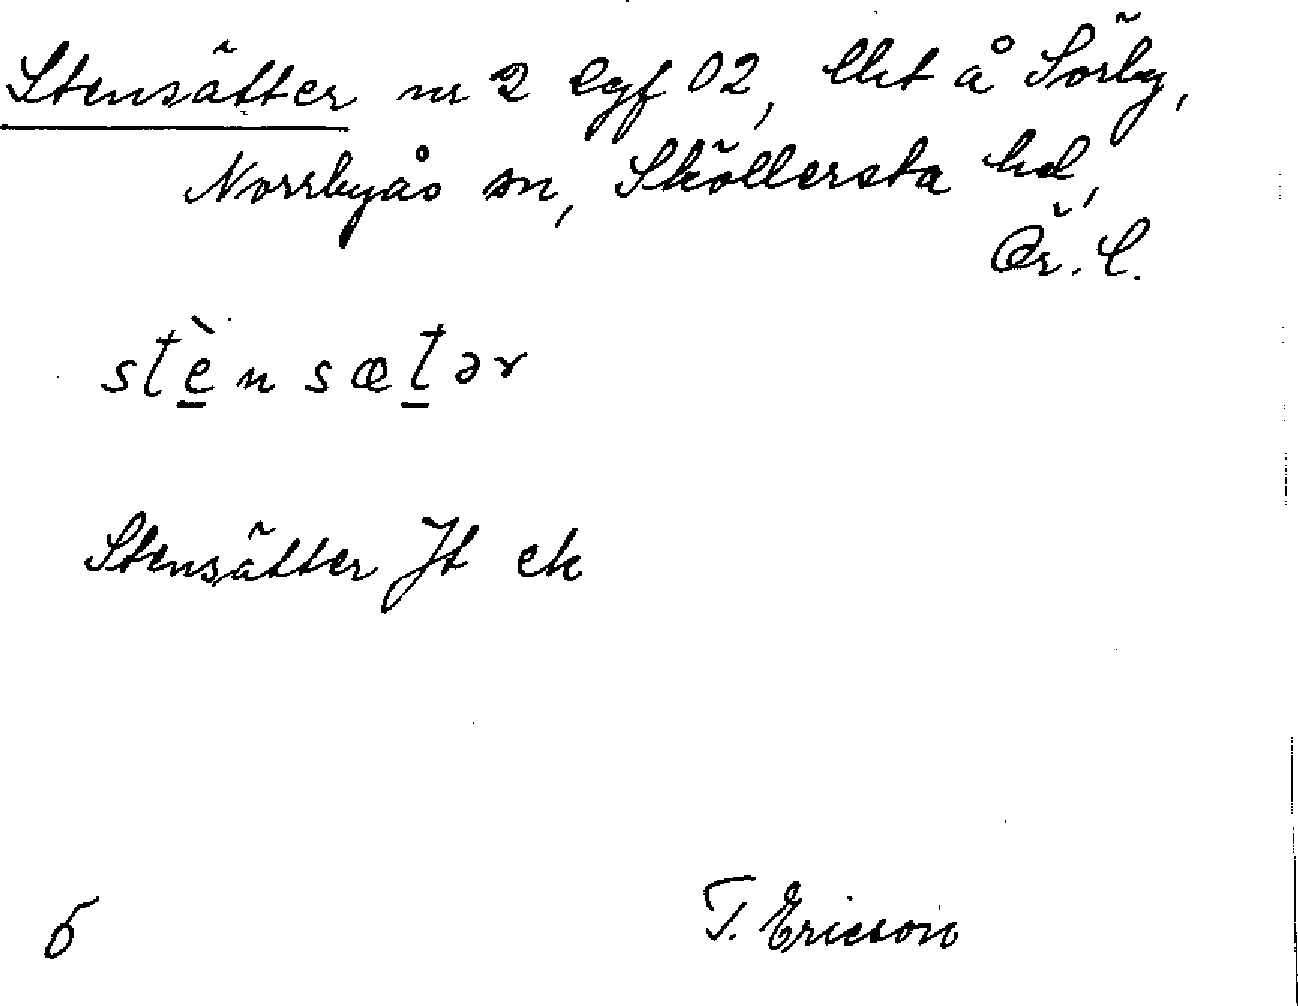 Stensätter nr 2 lgf 02, lht å Sörby,
Norrbyås sn, Sköllersta hd,
Ör. l.
stè̱nsæṯər
Stensätter Jt ek
6 T. Ericson